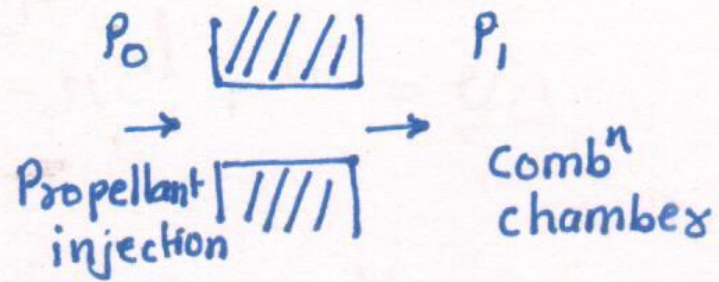 P₀
P₁
Propellant
injection
Combⁿ
chamber